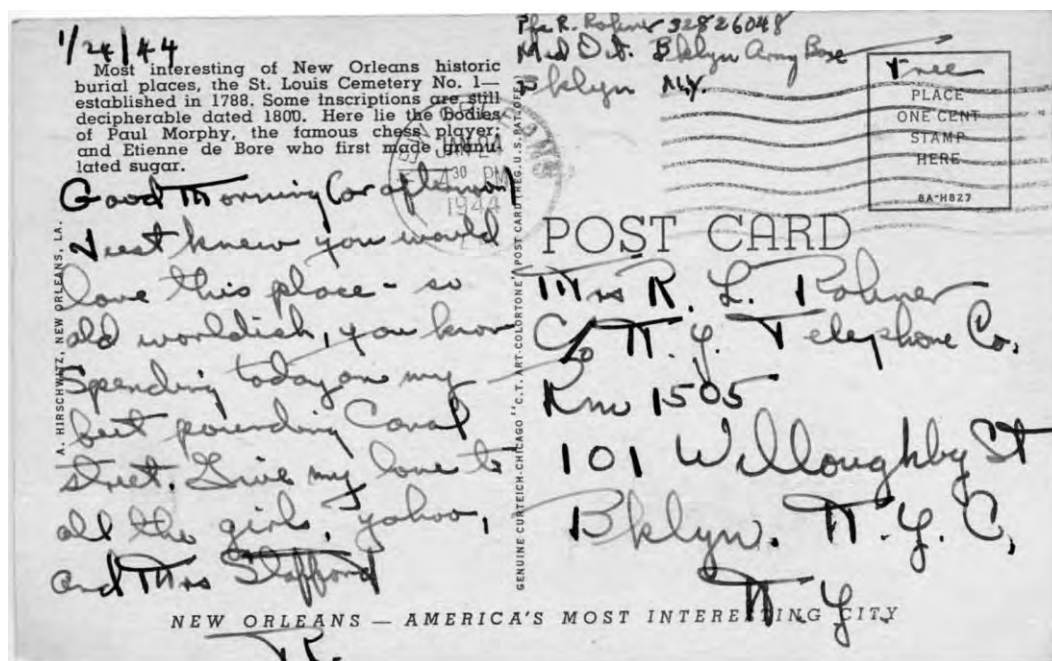 1/24/44
Most interesting of New Orleans historic
burial places, the St. Louis Cemetery No. 1—
established in 1788. Some inscriptions are still
decipherable dated 1800. Here lie the bodies
of Paul Morphy, the famous chess player;
and Etienne de Bore who first made granu-
lated sugar.
Good Morning (or afternoon)
Just knew you would
love this place - so
old worldish, you know
Spending today on my
feet pounding Canal
street. Give my love to
all the girls, yahoo,
and Mrs Stafford
R.
A. HIRSCHWITZ, NEW ORLEANS, LA.
GENUINE CURTEICH-CHICAGO "C.T. ART-COLORTONE" POST CARD (REG. U.S. PAT. OFF.)
Pfc R. Rohner 32826048
Med Det. Bklyn Army Base
Bklyn N.Y.
JAN 24
30 PM
1944
Free
PLACE
ONE CENT
STAMP
HERE
8A-H827
POST CARD
Mrs R. L. Rohner
C/o N.Y. Telephone Co.
Rm 1505
101 Willoughby St
Bklyn. N.Y.C.
N.Y.
NEW ORLEANS — AMERICA'S MOST INTERESTING CITY